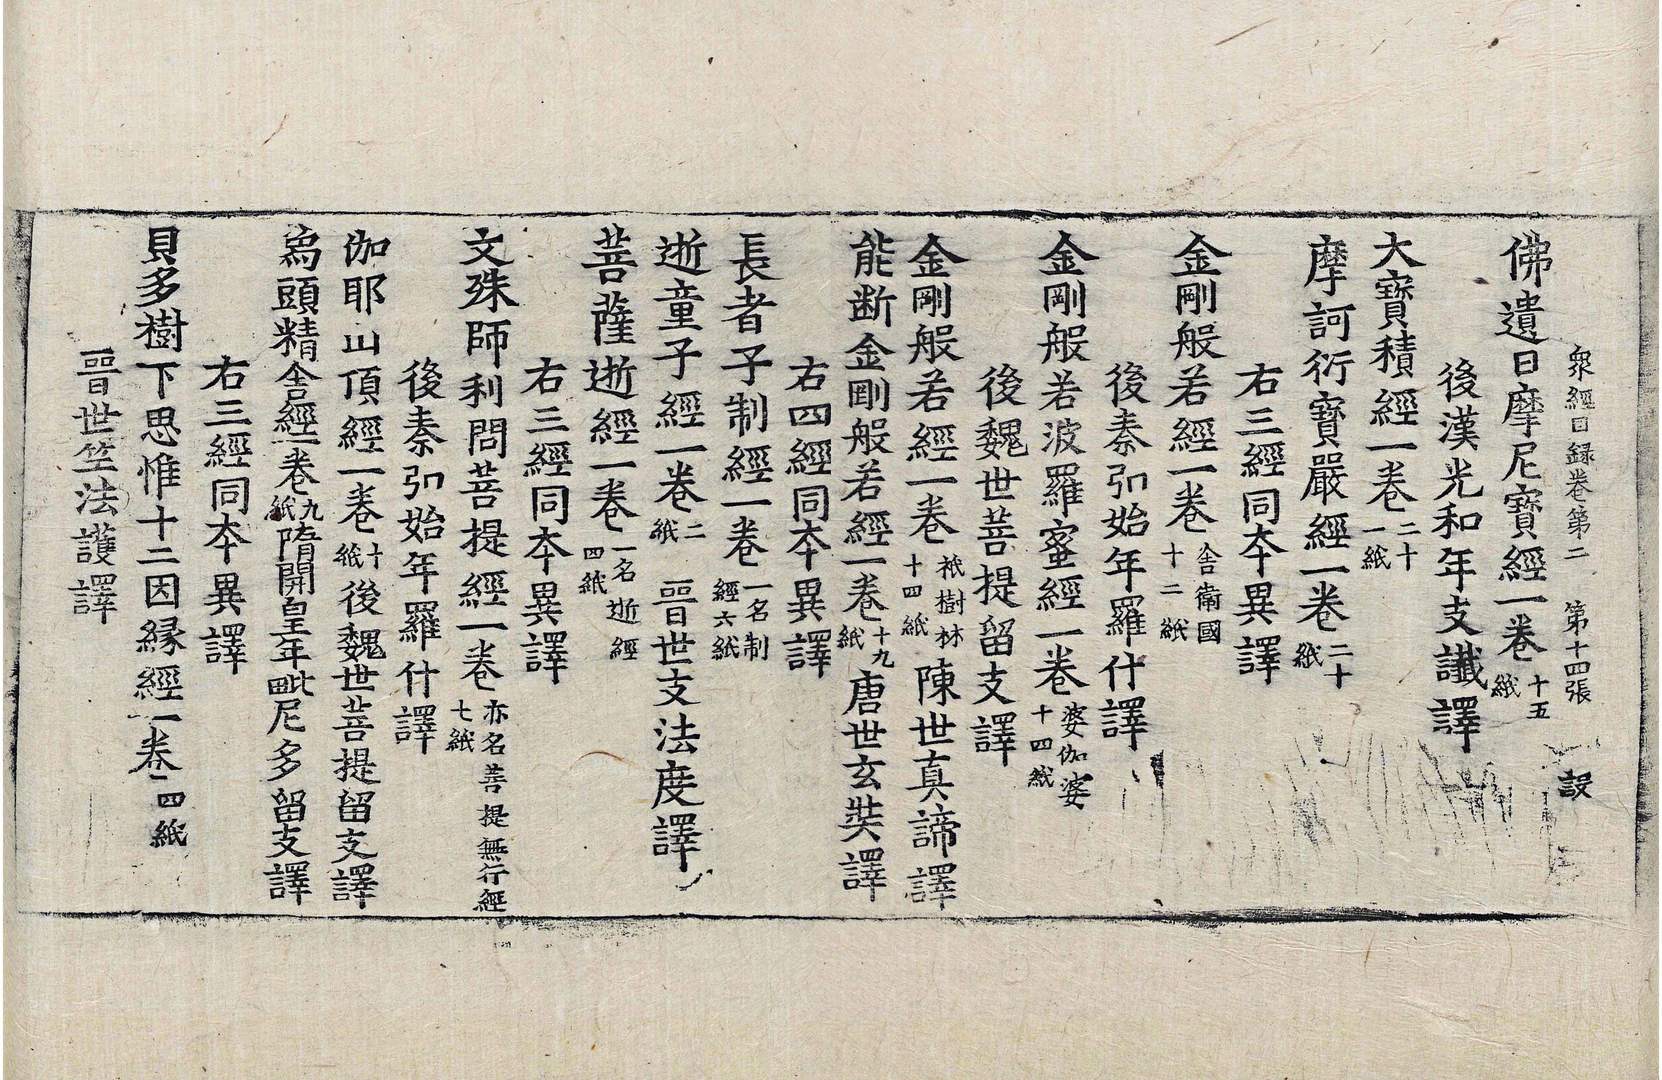 衆經目録卷第二　第十四張　設
佛遺日摩尼寶經一卷十五紙
後漢光和年支讖譯
大寶積經一卷二十一紙
摩訶衍寶嚴經一卷二十紙
右三經同本異譯
金剛般若經一卷舍衛國十二紙
後秦弘始年羅什譯
金剛般若波羅蜜經一卷婆伽婆十四紙
後魏世菩提留支譯
金剛般若經一卷祇樹林十四紙陳世真諦譯
能断金剛般若經一卷十九紙唐世玄奘譯
右四經同本異譯
長者子制經一卷一名制經六紙
逝童子經一卷二紙　晉世支法度譯
菩薩逝經一卷一名逝經四紙
右三經同本異譯
文殊師利問菩提經一卷亦名菩提無行經七紙
後秦弘始年羅什譯
伽耶山頂經一卷十紙後魏世菩提留支譯
烏頭精舍經一卷九紙隋開皇年毗尼多留支譯
右三經同本異譯
貝多樹下思惟十二因縁經一卷四紙
晉世竺法護譯